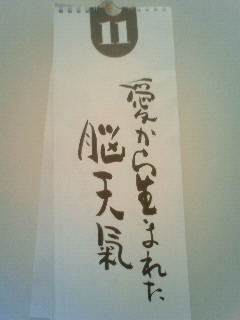 11
愛から生まれた
脳天氣